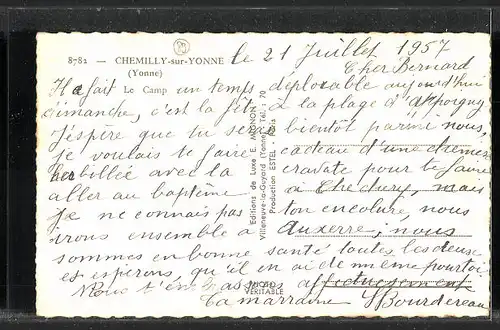 8782 — CHEMILLY-sur-YONNE
(Yonne)
Le Camp
le 21 Juillet 1957
Cher Bernard
Il a fait un temps déplorable aujourd'hui
dimanche, c'est la fête à la plage d'Appoigny
J'espère que tu seras bientôt parmi nous,
je voulais te faire cadeau d'une chemise
habillée avec la cravate pour te faire
aller au baptême à Chéury, mais
je ne connais pas ton encolure, nous
irons ensemble à Auxerre, nous
sommes en bonne santé toutes les deux
espérons, qu'il en ai de même pour toi
Nous t'embrassons affectueusement
Ta marraine Bourdereau
Editions de Luxe E. MIGNON
Villeneuve-la-Guyard (Yonne) Tél.: 70
Production ESTEL - Blois
PHOTO
VÉRITABLE